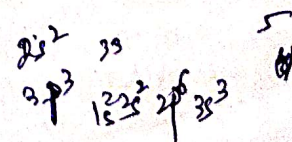 2s² 33 5
3p³ 1s²2s² 2p⁶ 3s³